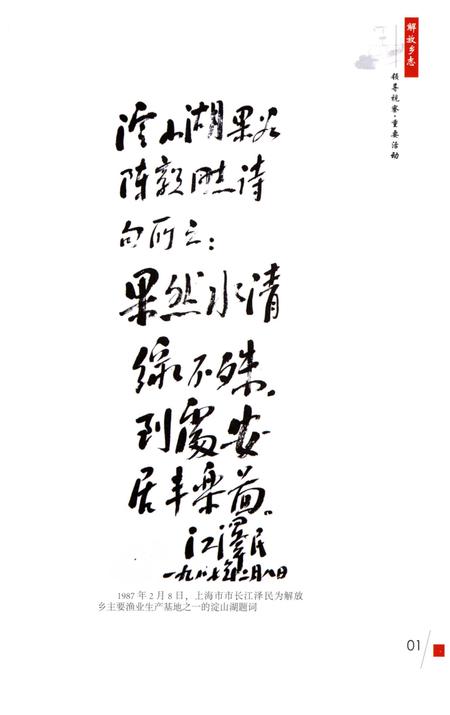 解放乡志
领导视察·重要活动
淀山湖果如
陈毅同志诗
句所云：
果然水清
绿不殊，
到处安
居丰乐
江泽民
一九八七年二月八日
1987 年 2 月 8 日，上海市市长江泽民为解放
乡主要渔业生产基地之一的淀山湖题词
01